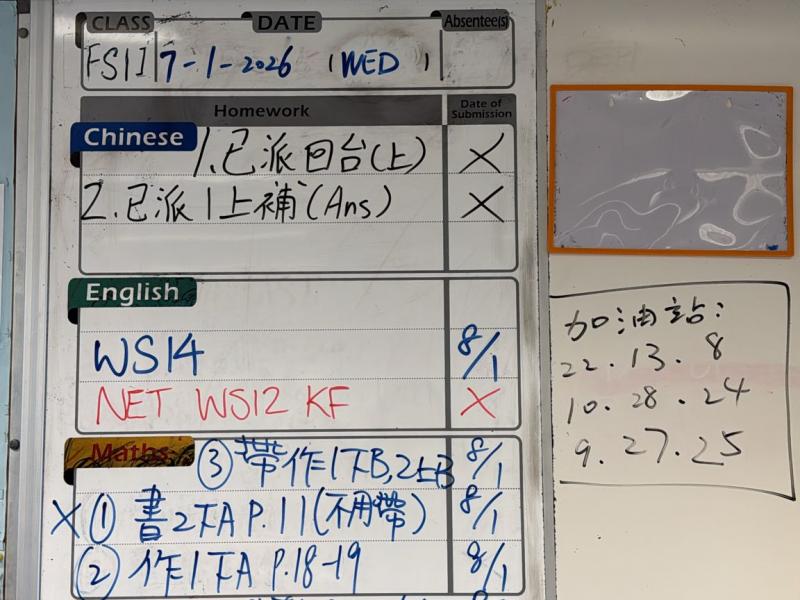 CLASS DATE Absentee(s)
FS1I 7-1-2026 (WED)
Homework Date of Submission
Chinese
1.已派回台(上) X
2.已派1上補(Ans) X
English
WS14 8/1
NET WS12 KF X
Maths
③ 帶作1下B,2上B 8/1
X ① 書2下A P.11(不用帶) 8/1
② 作1下A P.18-19 8/1
加油站:
22.13.8
10.28.24
9.27.25